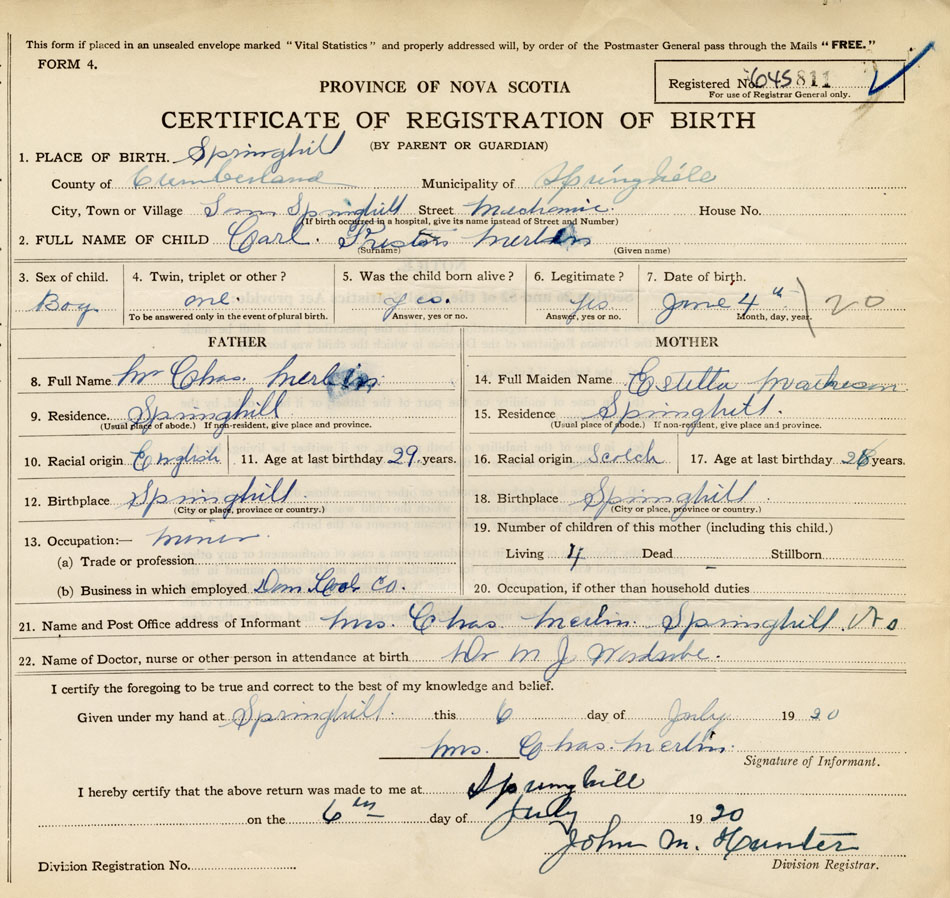 This form if placed in an unsealed envelope marked "Vital Statistics" and properly addressed will, by order of the Postmaster General pass through the Mails "FREE."
FORM 4.
Registered No. 645811
For use of Registrar General only.
PROVINCE OF NOVA SCOTIA
CERTIFICATE OF REGISTRATION OF BIRTH
(BY PARENT OR GUARDIAN)
1. PLACE OF BIRTH. Springhill
County of Cumberland Municipality of Springhill
City, Town or Village Springhill Street Mechanic House No.
(If birth occurred in a hospital, give its name instead of Street and Number)
2. FULL NAME OF CHILD Carl Merlin
(Surname) (Given name)
3. Sex of child. 4. Twin, triplet or other? 5. Was the child born alive? 6. Legitimate? 7. Date of birth.
Boy one. yes. yes June 4th 20
To be answered only in the event of plural birth. Answer, yes or no. Answer, yes or no. Month, day, year.
FATHER MOTHER
8. Full Name Mr Chas. Merlin 14. Full Maiden Name Estella Matheson
9. Residence. Springhill 15. Residence Springhill.
(Usual place of abode.) If non-resident, give place and province. (Usual place of abode.) If non-resident, give place and province.
10. Racial origin English 11. Age at last birthday 29 years. 16. Racial origin Scotch 17. Age at last birthday 28 years.
12. Birthplace Springhill 18. Birthplace Springhill
(City or place, province or country.) (City or place, province or country.)
13. Occupation:— miner 19. Number of children of this mother (including this child.)
(a) Trade or profession. Living 4 Dead Stillborn
(b) Business in which employed Dom Coal Co. 20. Occupation, if other than household duties
21. Name and Post Office address of Informant Mrs. Chas Merlin. Springhill NS
22. Name of Doctor, nurse or other person in attendance at birth Dr M J Wardrobe.
I certify the foregoing to be true and correct to the best of my knowledge and belief.
Given under my hand at Springhill. this 6 day of July 1920
Mrs. Chas. Merlin.
Signature of Informant.
I hereby certify that the above return was made to me at Springhill
on the 6th day of July 1920
John M. Hunter
Division Registration No. Division Registrar.